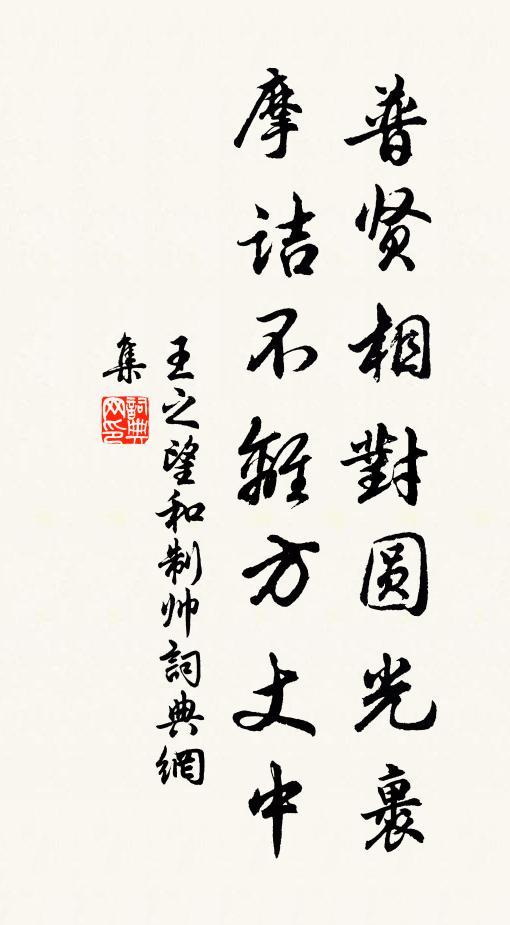 普贤相對圆光裹
摩诘不離方丈中
王之望和制帅詞典網
集
詞典
网印